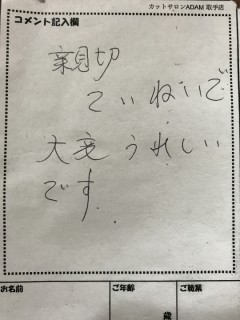 カットサロンADAM 取手店
コメント記入欄
親切
ていねいで
大変うれしい
です
お名前
ご年齢
ご職業
歳